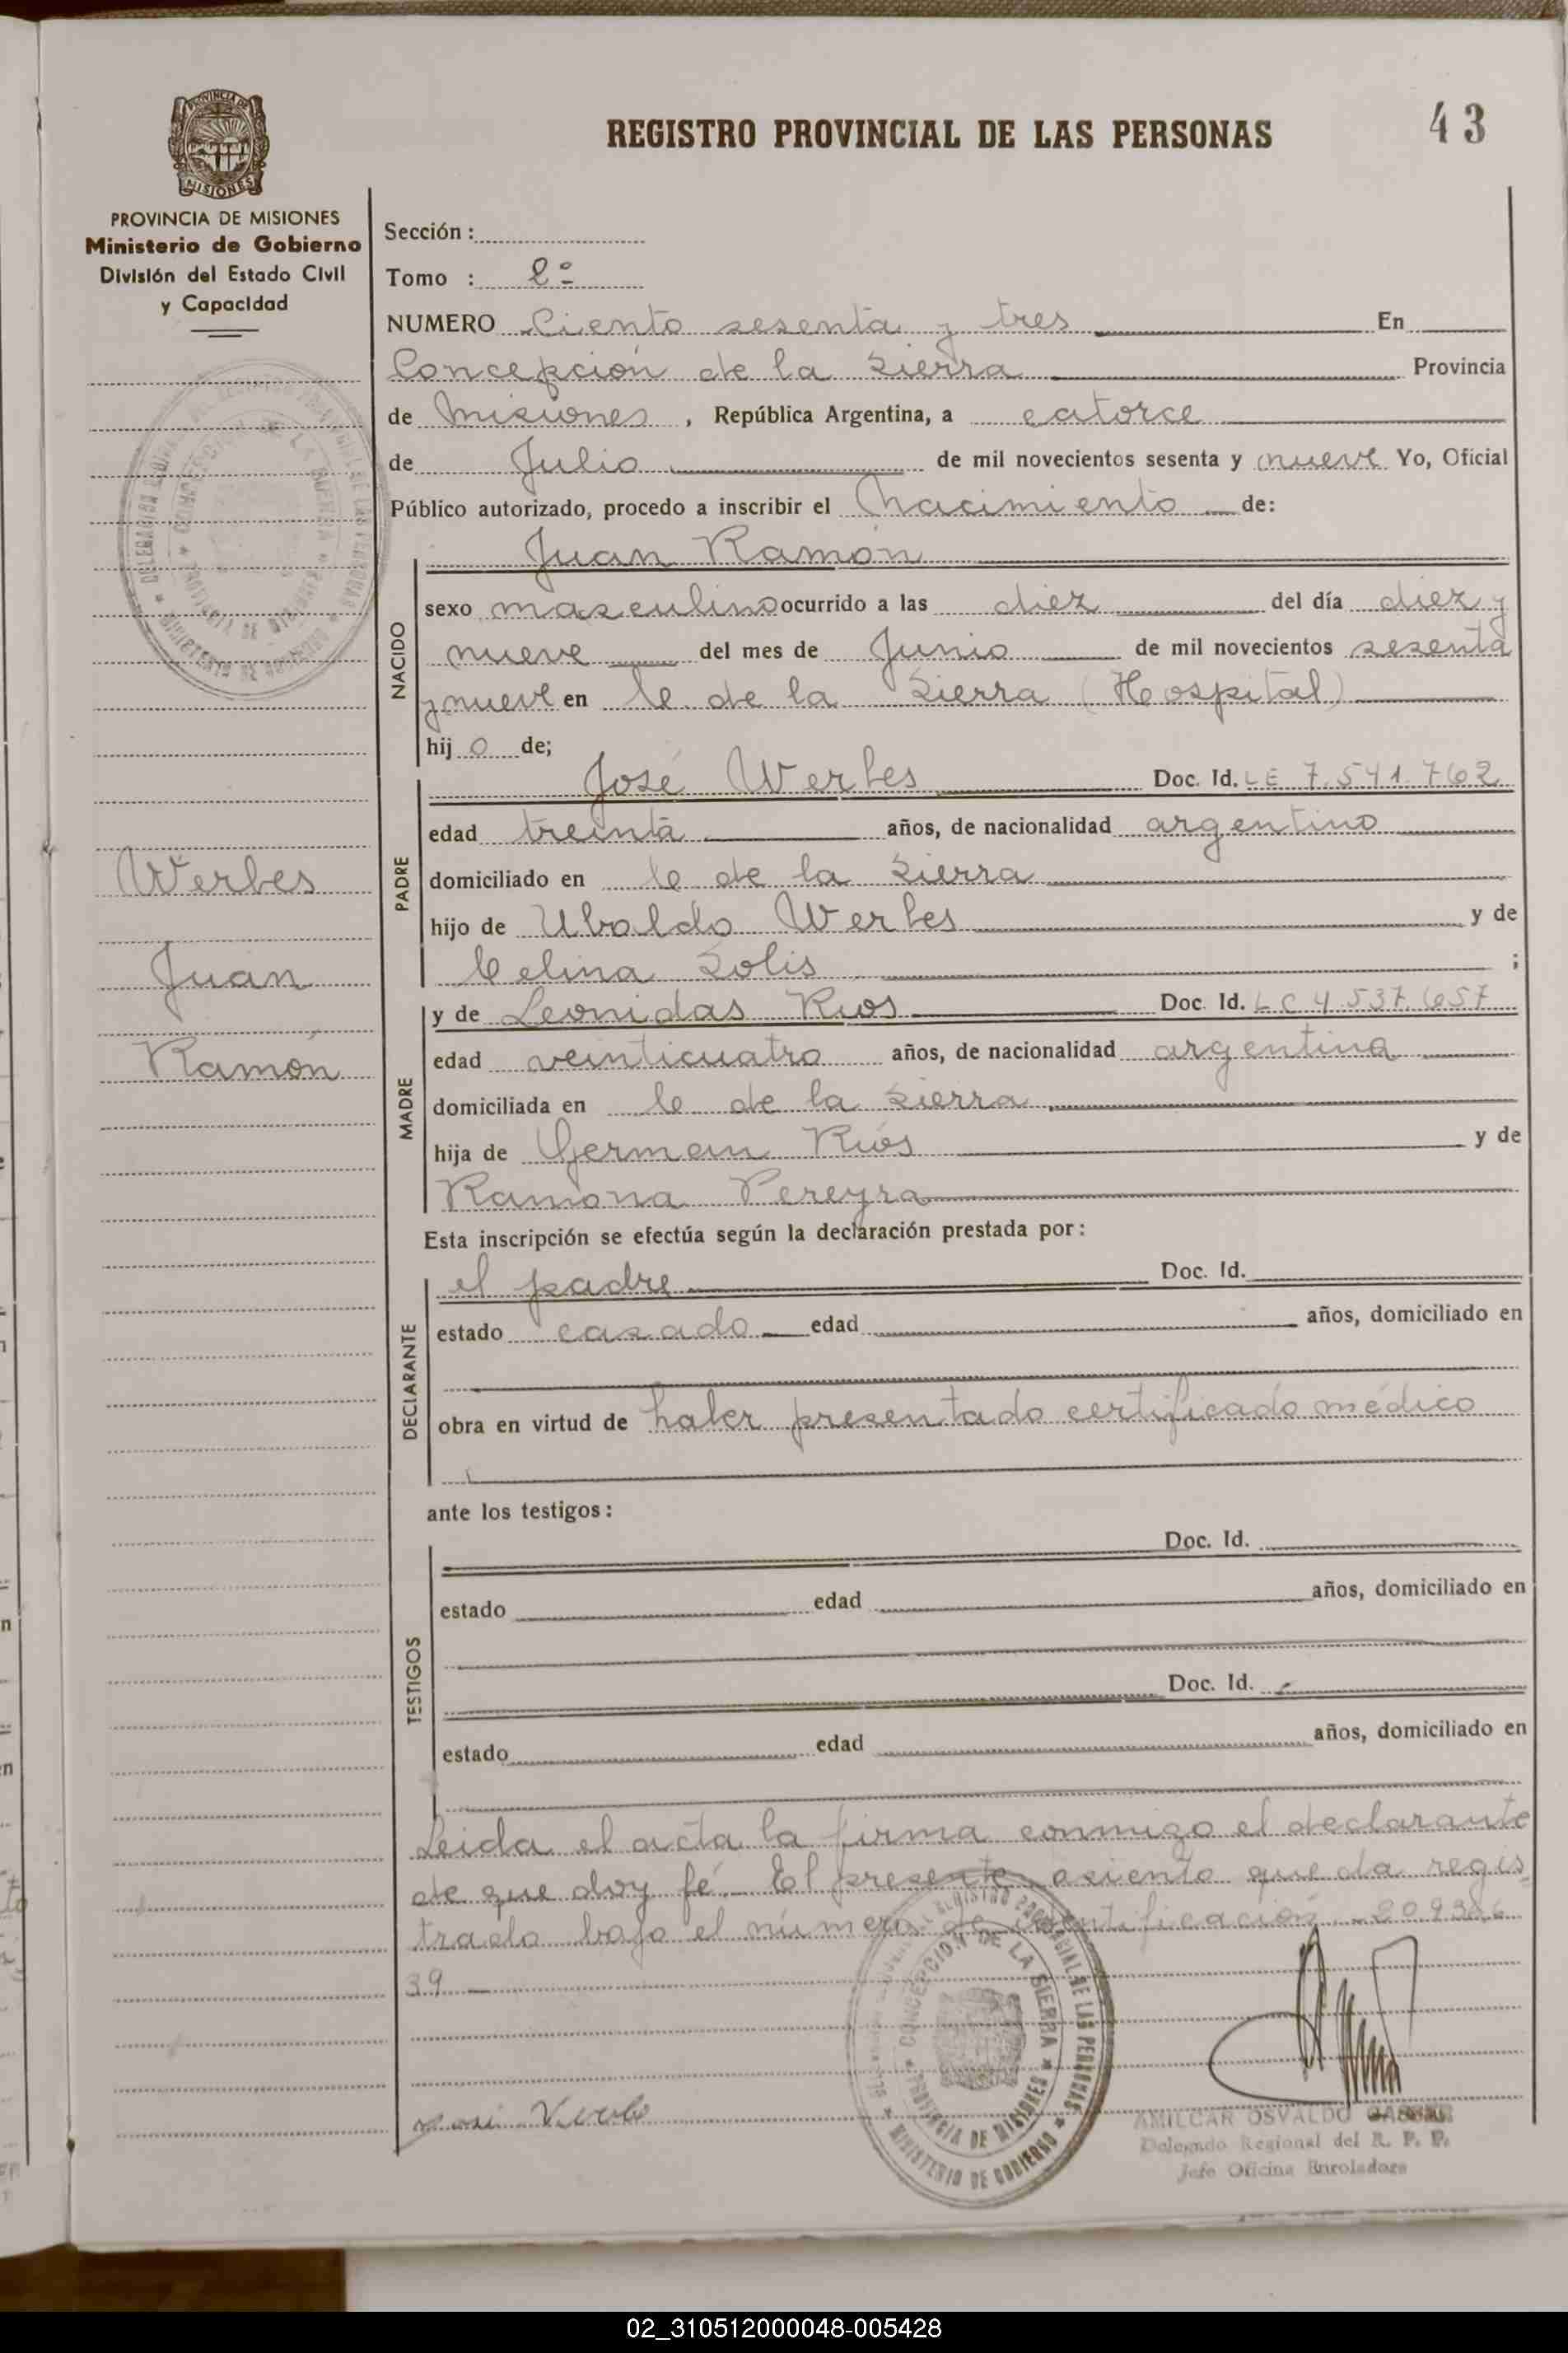 43
REGISTRO PROVINCIAL DE LAS PERSONAS
PROVINCIA DE MISIONES
Ministerio de Gobierno
División del Estado Civil
y Capacidad
Werbes
Juan
Ramón
Sección :
Tomo : 2º
NUMERO Ciento sesenta y tres En
Concepción de la Sierra Provincia
de Misiones, República Argentina, a catorce
de Julio de mil novecientos sesenta y nueve Yo, Oficial
Público autorizado, procedo a inscribir el Nacimiento de:
NACIDO
Juan Ramón
sexo masculino ocurrido a las diez del día diez y
nueve del mes de Junio de mil novecientos sesenta
y nueve en C de la Sierra (Hospital)
hij o de;
PADRE
José Werbes Doc. Id. LE 7.541.762
edad treinta años, de nacionalidad argentino
domiciliado en C de la Sierra
hijo de Ubaldo Werbes y de
Celina Solis ;
MADRE
y de Leonidas Rios Doc. Id. LC 4.537.657
edad veinticuatro años, de nacionalidad argentina
domiciliada en C de la Sierra
hija de German Ríos y de
Ramona Pereyra
Esta inscripción se efectúa según la declaración prestada por:
DECLARANTE
el padre Doc. Id.
estado casado edad años, domiciliado en
obra en virtud de haber presentado certificado médico
ante los testigos:
TESTIGOS
Doc. Id.
estado edad años, domiciliado en
Doc. Id.
estado edad años, domiciliado en
Leida el acta la firma conmigo el declarante
de que doy fé. El presente asiento queda regis
trado bajo el número de identificación
39
CONCEPCION DE LA SIERRA
PROVINCIA DE MISIONES
MINISTERIO DE GOBIERNO
AMILCAR OSVALDO
Delegado Regional del R. P. P.
Jefe Oficina Enroladora
02_310512000048-005428